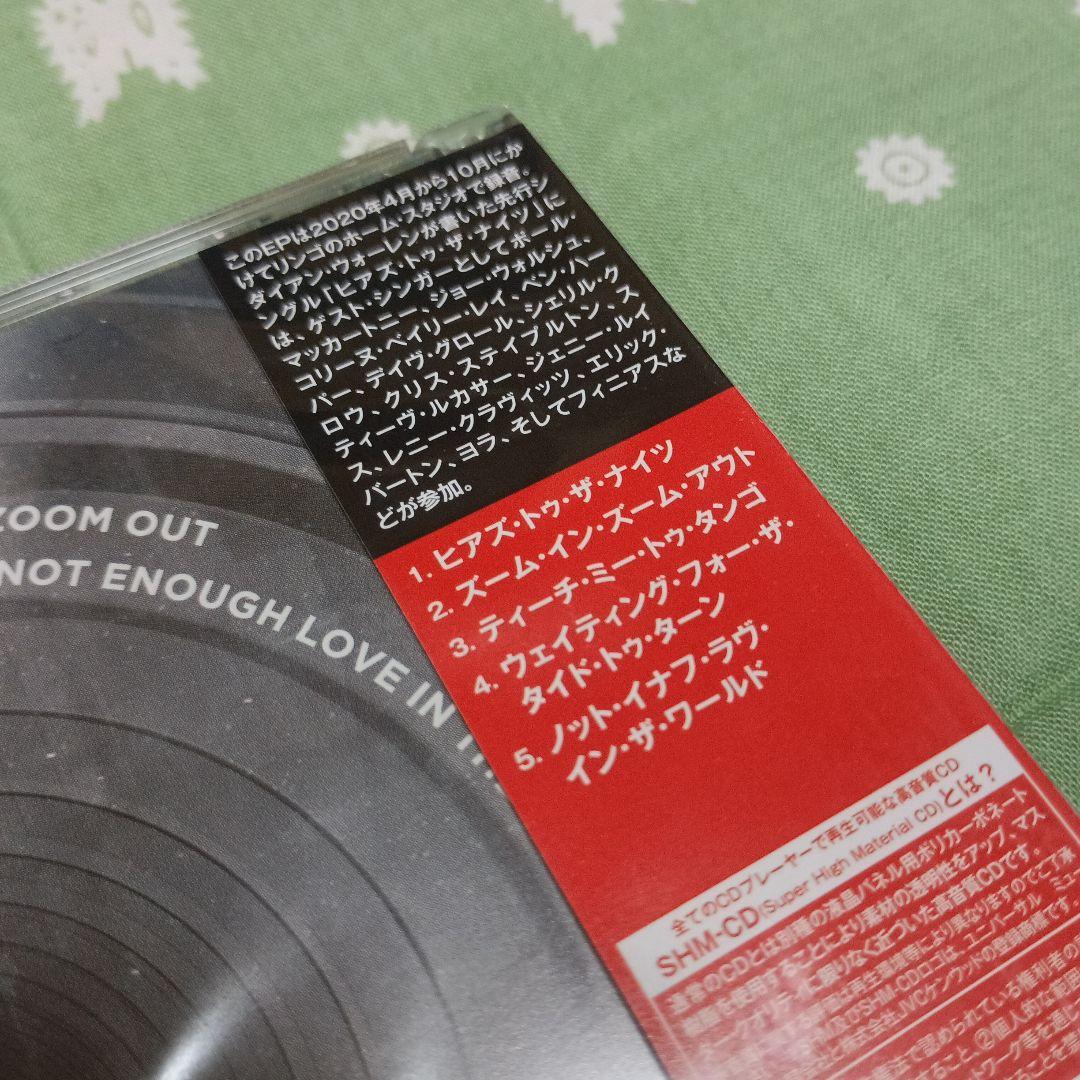 このEPは2020年4月から10月にか
けてリンゴのホーム・スタジオで録音。
ダイアン・ウォーレンが書いた先行シ
ングル「ヒアズ・トゥ・ザ・ナイツ」に
は、ゲスト・シンガーとしてポール・
マッカートニー、ジョー・ウォルシュ、
コリーヌ・ベイリー・レイ、ベン・ハー
パー、デイヴ・グロール、シェリル・ク
ロウ、クリス・ステイプルトン、ス
ティーヴ・ルカサー、ジェニー・ルイ
ス、レニー・クラヴィッツ、エリック・
バートン、ヨラ、そしてフィニアスな
どが参加。
1. ヒアズ・トゥ・ザ・ナイツ
2. ズーム・イン・ズーム・アウト
3. ティーチ・ミー・トゥ・タンゴ
4. ウェイティング・フォー・ザ・
タイド・トゥ・ターン
5. ノット・イナフ・ラヴ・
イン・ザ・ワールド
ZOOM OUT
NOT ENOUGH LOVE IN
全てのCDプレーヤーで再生可能な高音質CD
SHM-CD(Super High Material CD)とは?
通常のCDとは別種の液晶パネル用ポリカーボネート
樹脂を使用することにより素材の透明性をアップ、マス
タークオリティに限りなく近づいた高音質CDです。
は再生環境等により異なりますのでご了承
及びSHM-CDロゴは、ユニバーサル ミュー
株式会社JVCケンウッドの登録商標です。
法で認められている権利者の
ること、②個人的な範囲
トワーク等を通じ